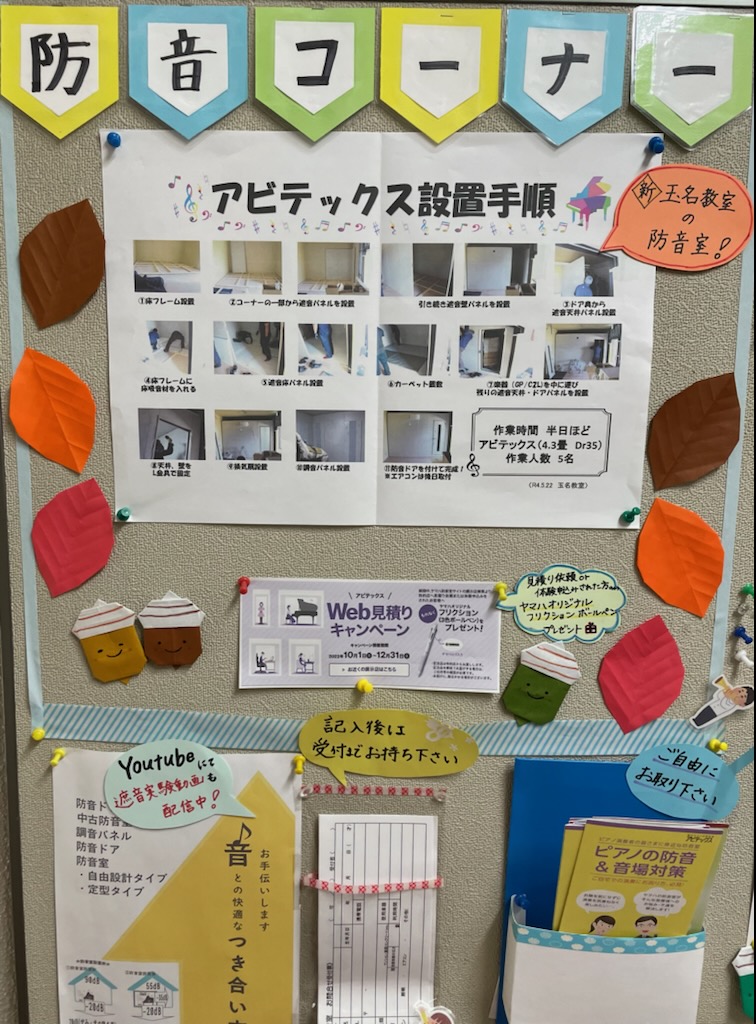 防音コーナー
アビテックス設置手順
新 玉名教室
の
防音室!
①床フレーム設置
②コーナーの一部から遮音パネルを設置
引き続き遮音壁パネルを設置
③ドア真から
遮音天井パネル設置
④床フレームに
床吸音材を入れる
⑤遮音床パネル設置
⑥カーペット敷設
⑦楽器(GP/C2L)を中に運び
残りの遮音天井・ドアパネルを設置
⑧天井、壁を
L金具で固定
⑨換気扇設置
⑩調音パネル設置
⑪防音ドアを付けて完成!
※エアコンは後日取付
作業時間 半日ほど
アビテックス(4.3畳 Dr35)
作業人数 5名
(R4.5.22 玉名教室)
アビテックス
Web見積り
キャンペーン
キャンペーン実施期間
10月1日 12月31日
お近くの展示店はこちら
ヤマハオリジナル
フリクション
プレゼント!
見積り依頼or
体験申込みされた方
ヤマハオリジナル
フリクションボールペン
プレゼント
記入後は
受付までお持ち下さい
Youtubeにて
遮音実験動画も
配信中!
ご自由に
お取り下さい
防音ド
中古防音
調音パネル
防音ドア
防音室
・自由設計タイプ
・定型タイプ
お手伝いします
音との快適なつき合い方
50dB
-20dB
55dB
-20dB
アビテックス
ピアノの防音
&音場対策